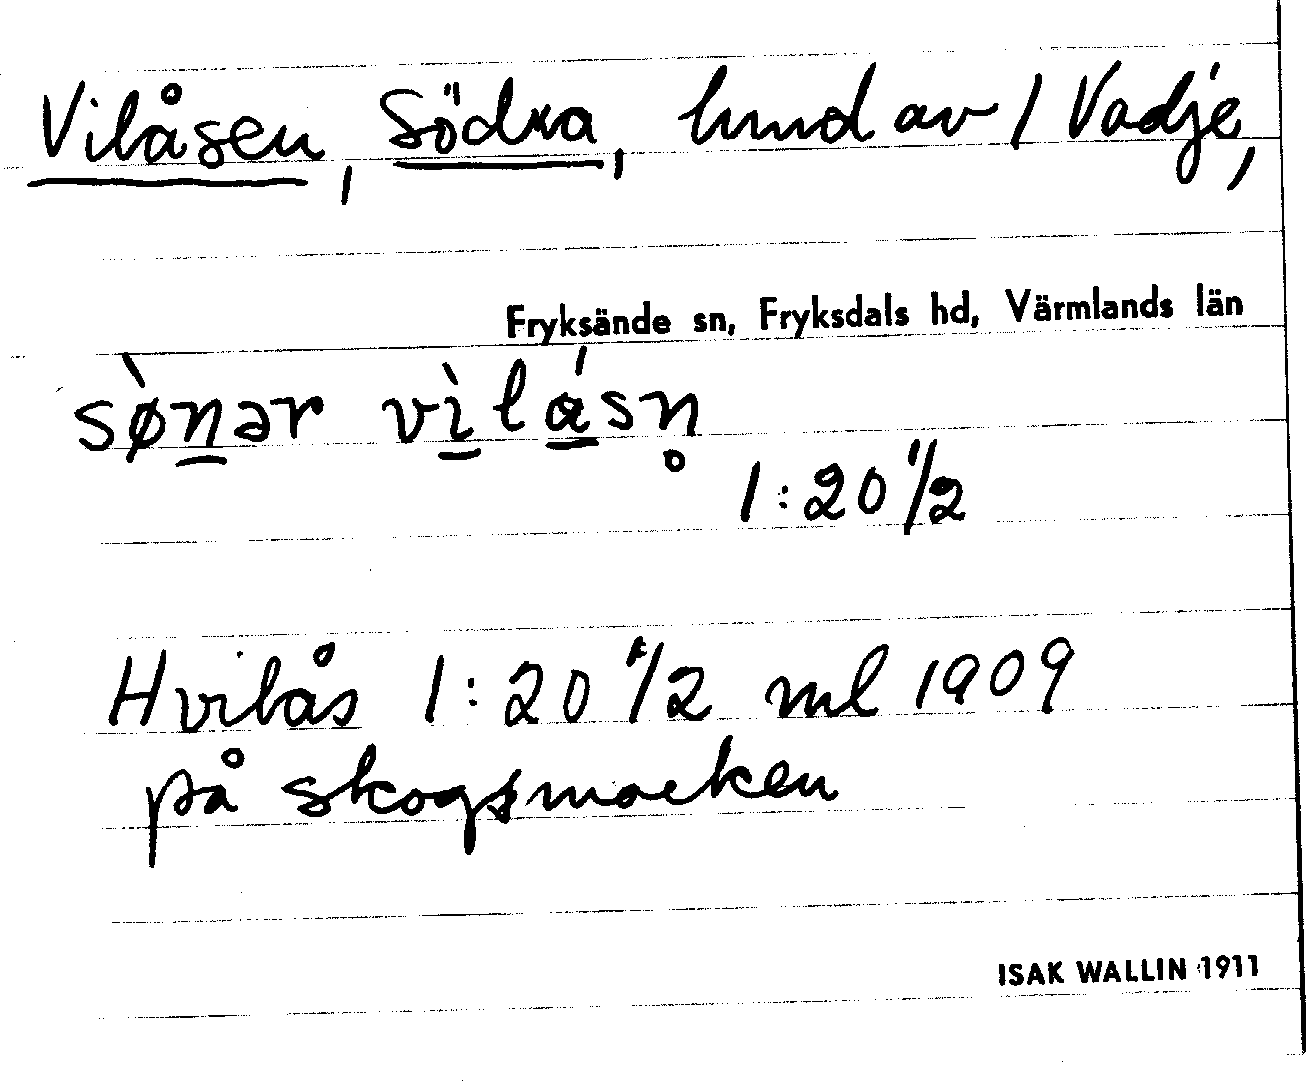 Vilåsen, Södra, hmd av 1 Vadje,
Fryksände sn, Fryksdals hd, Värmlands län
sø̀nər vìlásn̥
1:20 1/2
Hvilås 1:20 1/2 ml 1909
på skogsmarken
ISAK WALLIN 1911